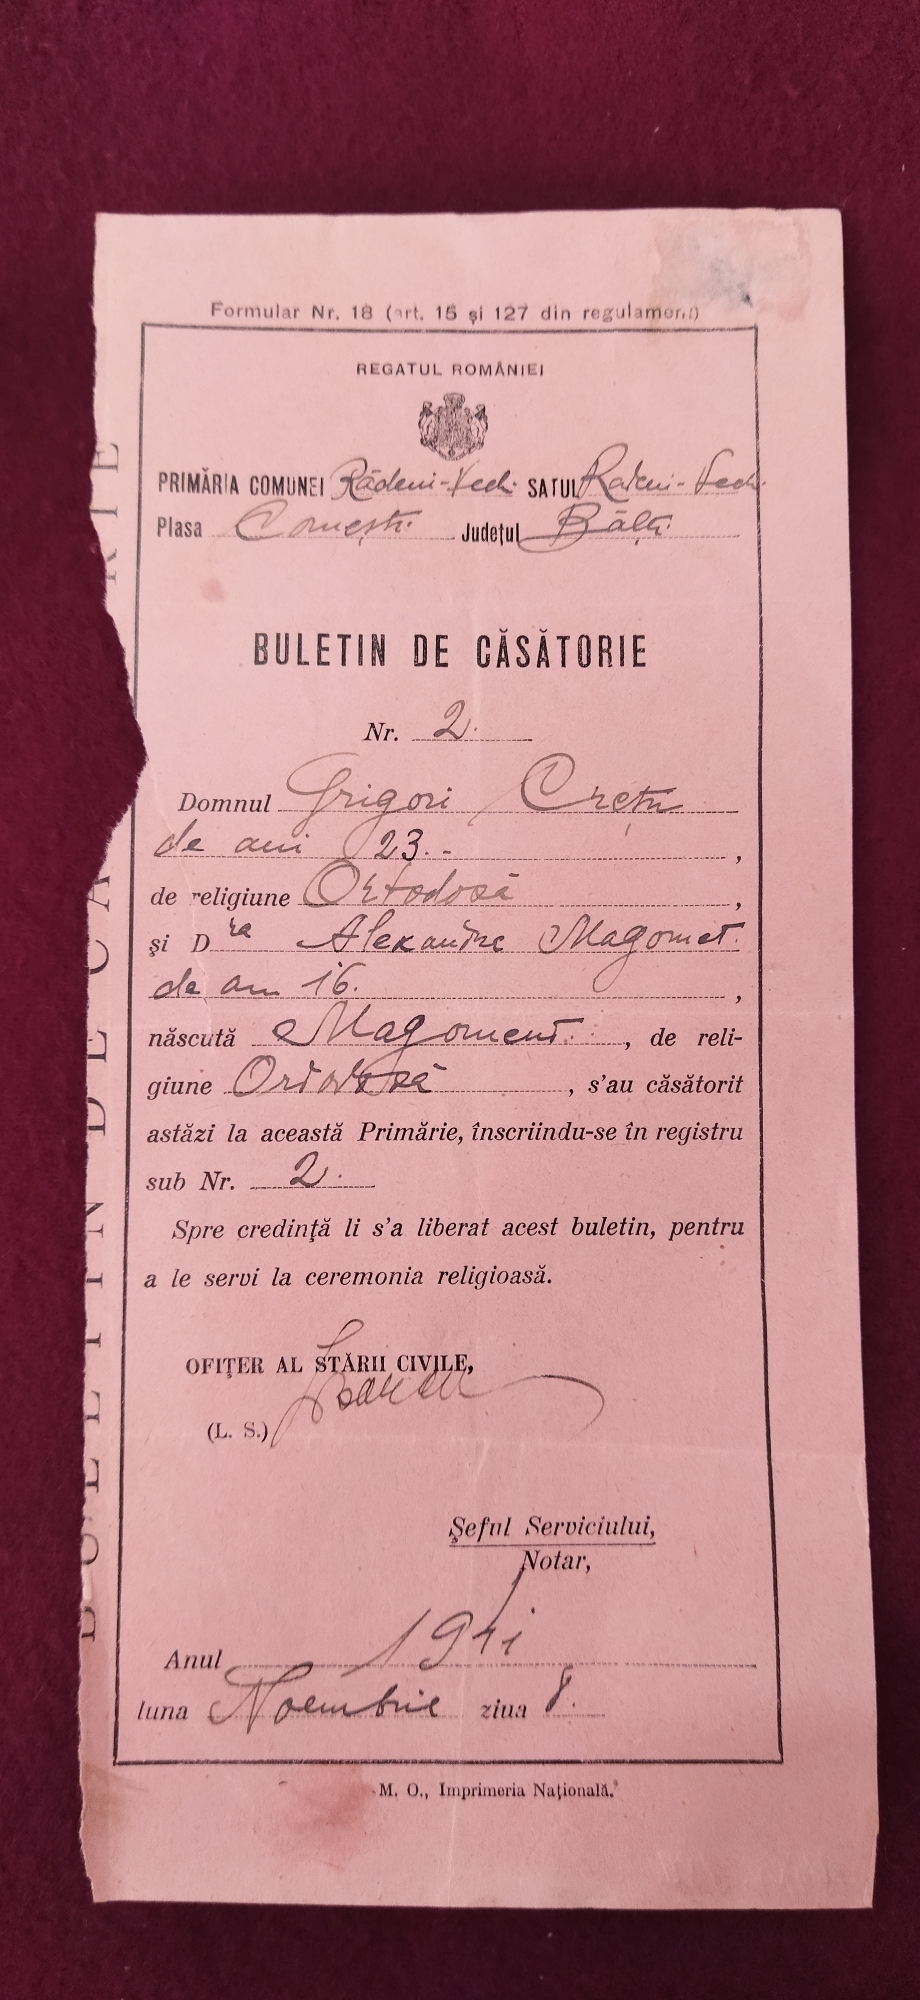 Formular Nr. 18 (art. 15 și 127 din regulament)
REGATUL ROMÂNIEI
PRIMĂRIA COMUNEI Rădeni-Vechi SATUL Radeni-Vechi
Plasa Cornești Județul Bălți
BULETIN DE CĂSĂTORIE
Nr. 2.
Domnul Grigori Crețu
de ani 23.-,
de religiune Ortodoxă,
și D ra Alexandra Magomet.
de ani 16.,
născută Magoment., de reli-
giune Ortodoxă, s'au căsătorit
astăzi la această Primărie, înscriindu-se în registru
sub Nr. 2.
Spre credință li s'a liberat acest buletin, pentru
a le servi la ceremonia religioasă.
OFIȚER AL STĂRII CIVILE,
(L. S.)
Șeful Serviciului,
Notar,
Anul 1941
luna Noembrie ziua 8.
M. O., Imprimeria Națională.
BULETIN DE CĂ RIE